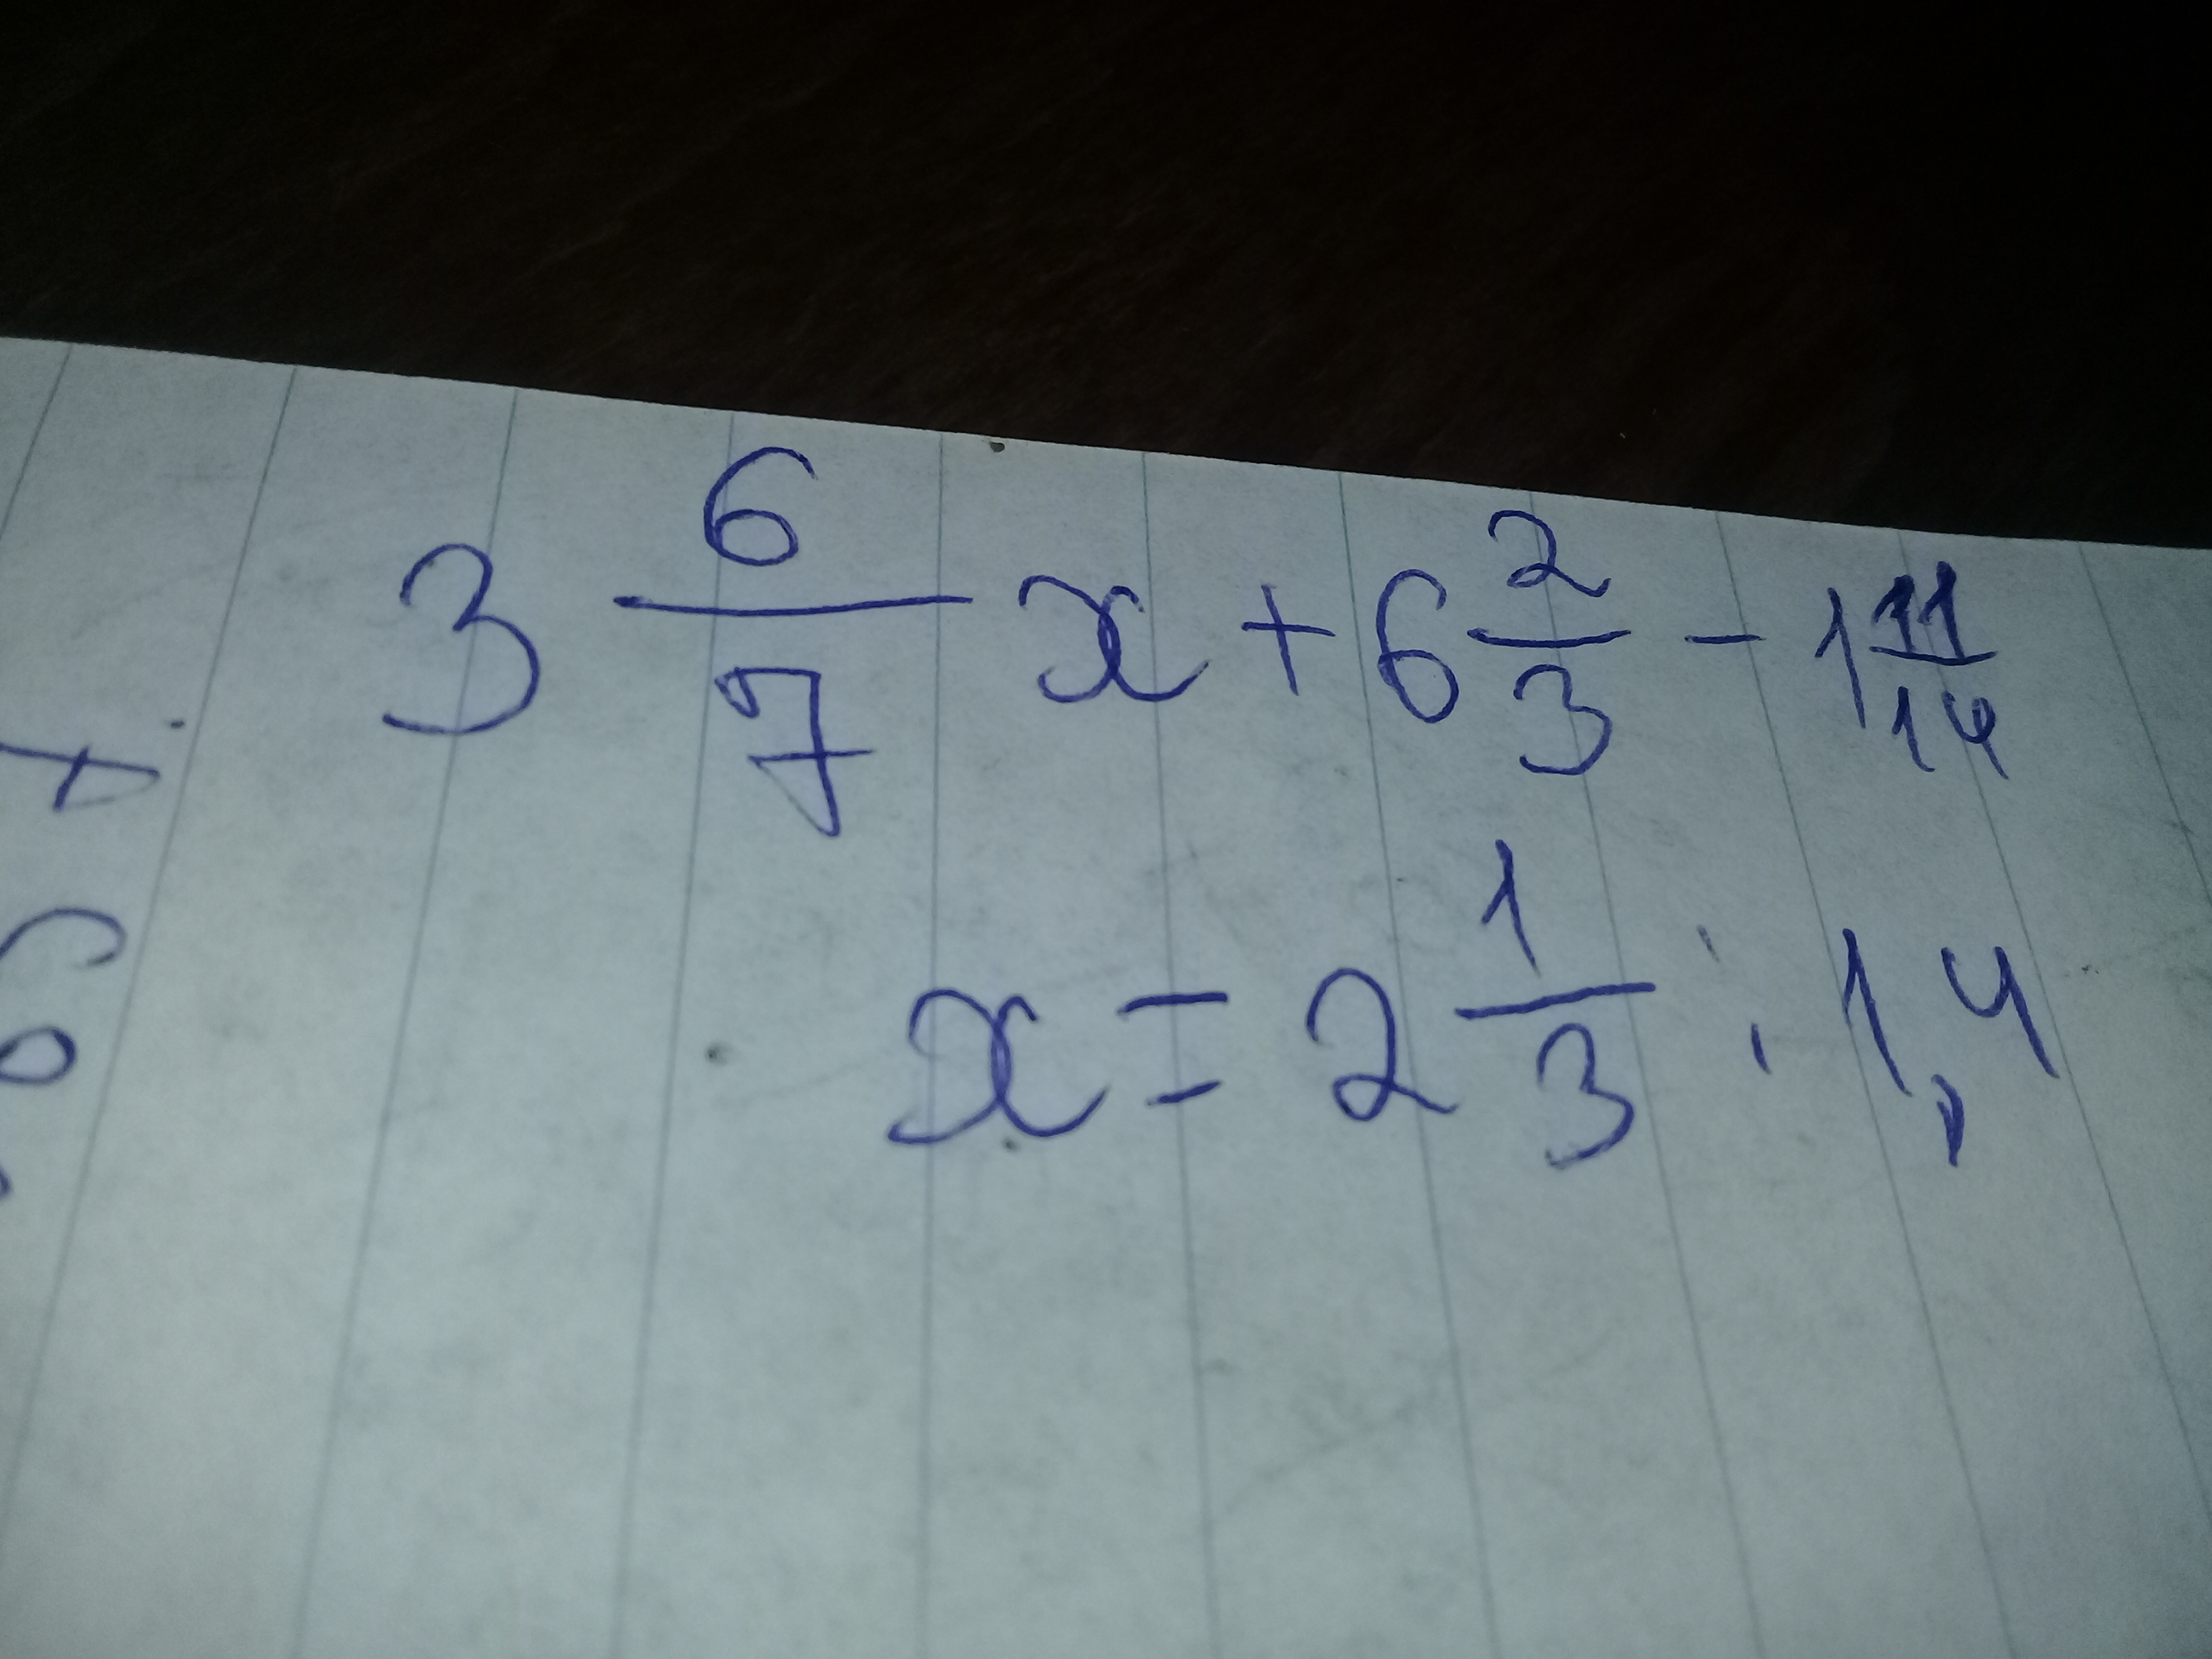 3 6/7 x + 6 2/3 - 1 11/14
x = 2 1/3 : 1,4